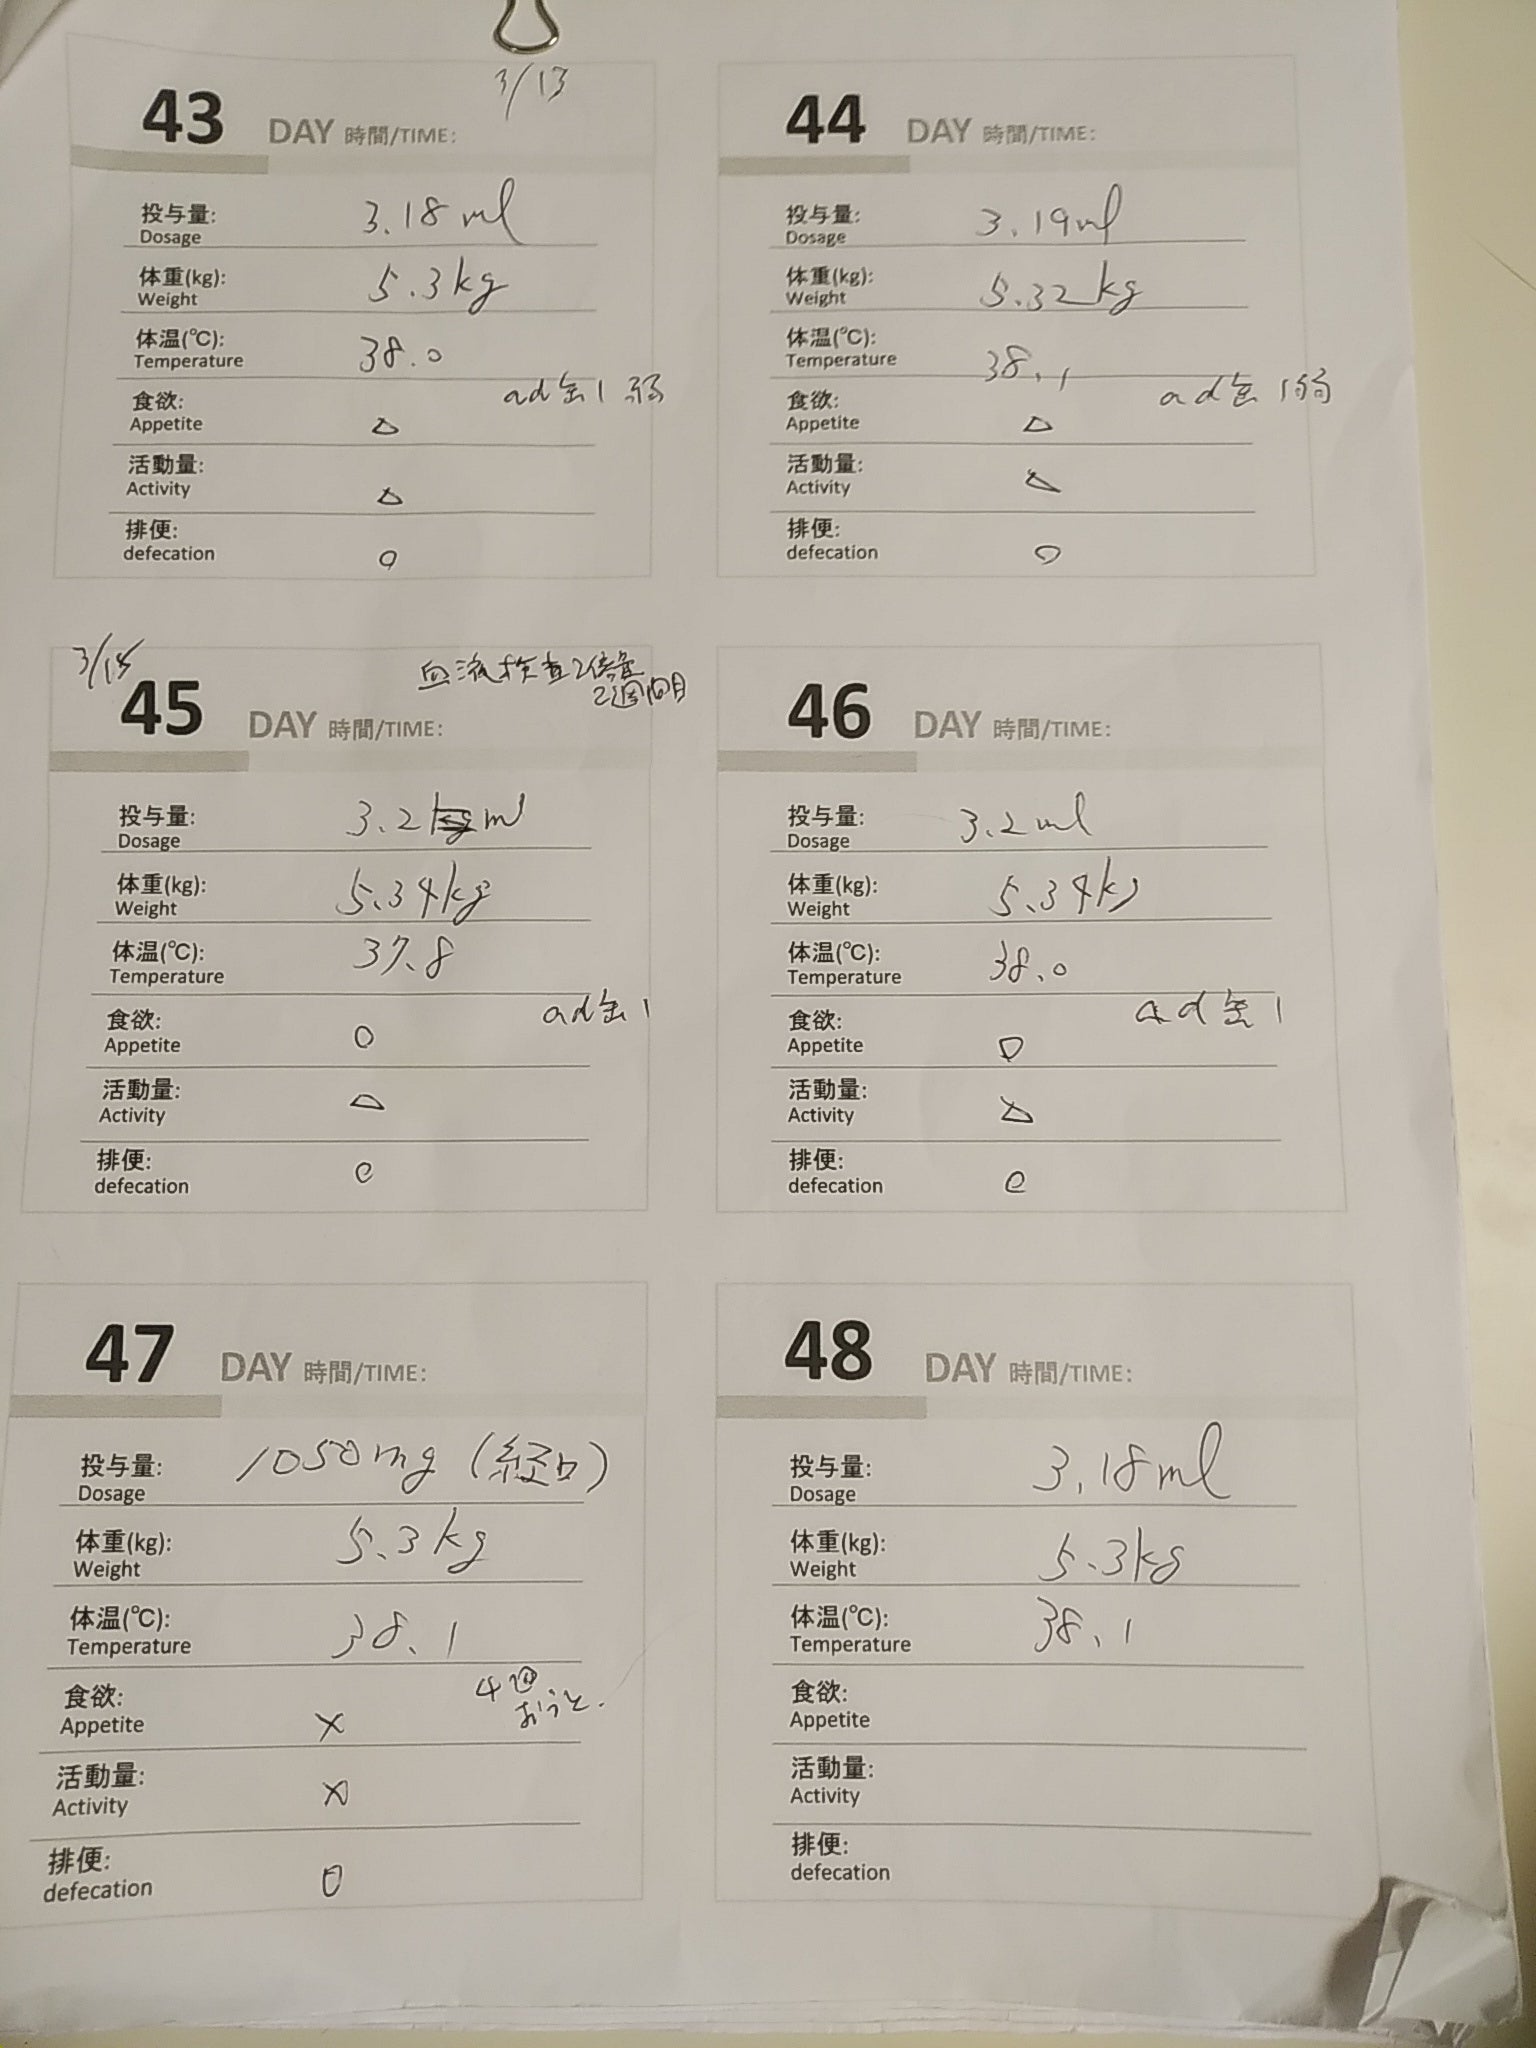 3/13
43 DAY 時間/TIME:
投与量: 3.18ml
Dosage
体重(kg): 5.3kg
Weight
体温(℃): 38.0
Temperature
ad缶1弱
食欲: △
Appetite
活動量: △
Activity
排便: ○
defecation
44 DAY 時間/TIME:
投与量: 3.19ml
Dosage
体重(kg): 5.32kg
Weight
体温(℃): 38.1
Temperature
ad缶1弱
食欲: △
Appetite
活動量: △
Activity
排便: ○
defecation
3/15
血液検査2倍量
2週間目
45 DAY 時間/TIME:
投与量: 3.2 ml
Dosage
体重(kg): 5.34kg
Weight
体温(℃): 37.8
Temperature
ad缶1
食欲: ○
Appetite
活動量: △
Activity
排便: ○
defecation
46 DAY 時間/TIME:
投与量: 3.2ml
Dosage
体重(kg): 5.34kg
Weight
体温(℃): 38.0
Temperature
ad缶1
食欲:
Appetite
活動量: △
Activity
排便: ○
defecation
47 DAY 時間/TIME:
投与量: 1050mg (経口)
Dosage
体重(kg): 5.3kg
Weight
体温(℃): 38.1
Temperature
4回
おうと.
食欲: ×
Appetite
活動量: ×
Activity
排便: ○
defecation
48 DAY 時間/TIME:
投与量: 3.18ml
Dosage
体重(kg): 5.3kg
Weight
体温(℃): 38.1
Temperature
食欲:
Appetite
活動量:
Activity
排便:
defecation